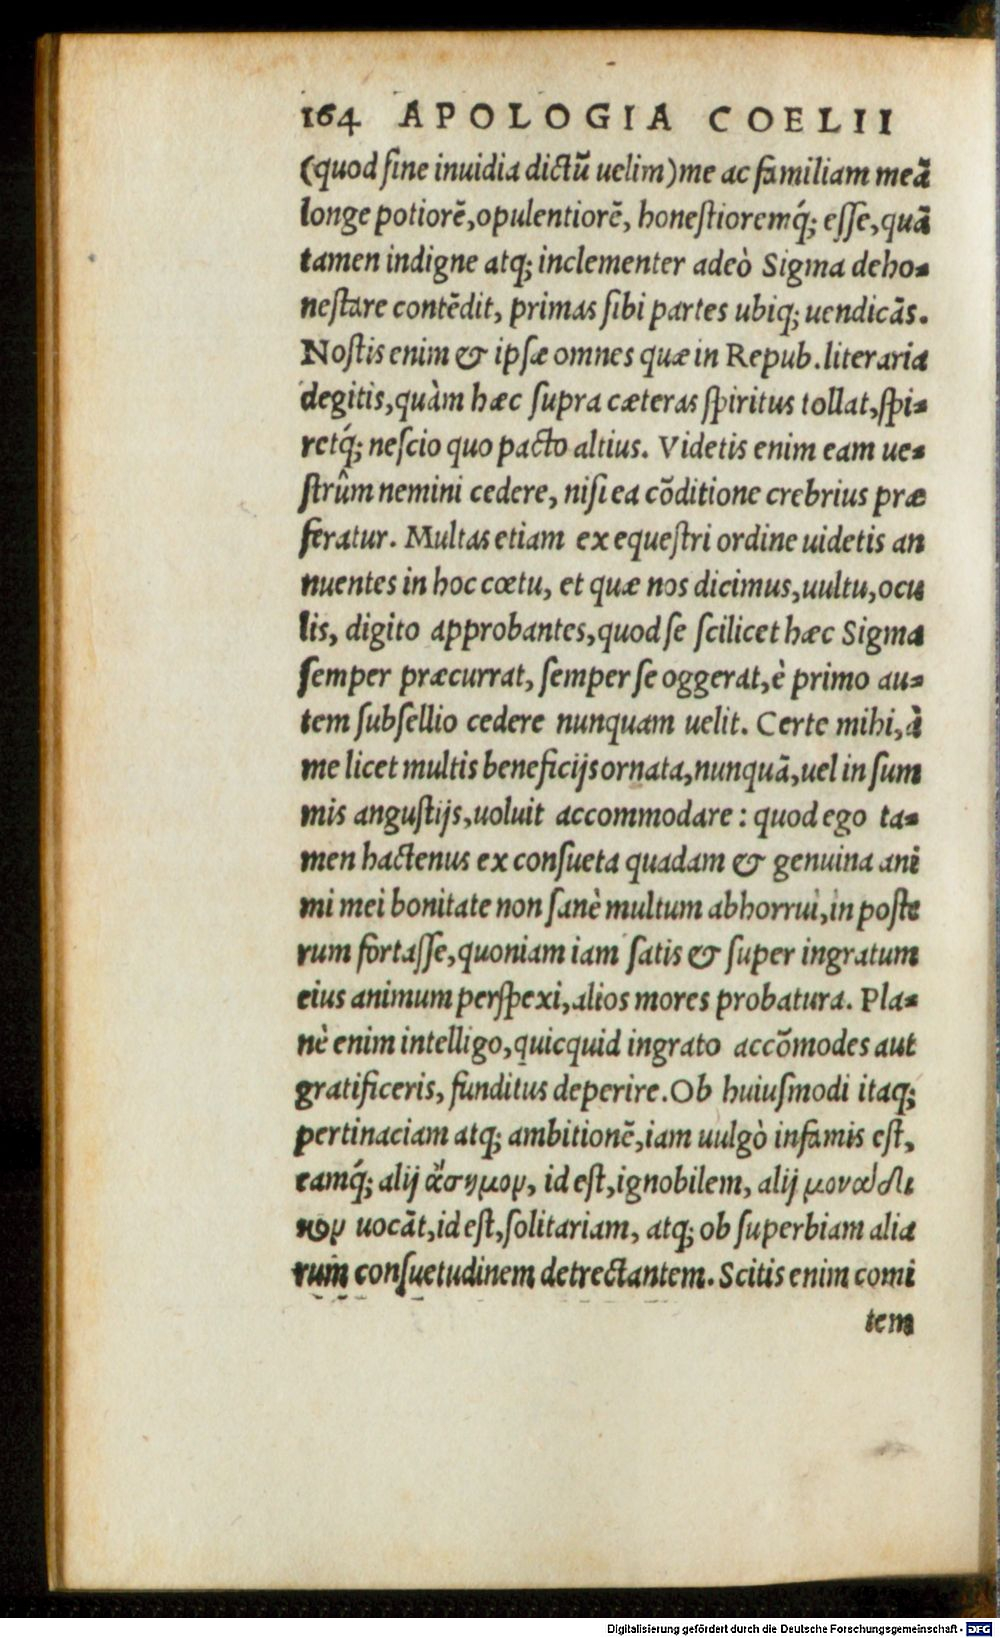 164 APOLOGIA COELII
(quod ſine inuidia dictũ uelim)me ac familiam meã
longe potiorẽ,opulentiorẽ, honeſtioremq́; eſſe,quã
tamen indigne atq; inclementer adeò Sigma deho-
neſtare contẽdit, primas ſibi partes ubiq; uendicãs.
Noſtis enim & ipſæ omnes quæ in Repub.literaria
degitis,quàm hæc ſupra cæteras ſpiritus tollat,ſpi-
retq́; neſcio quo pacto altius. Videtis enim eam ue-
ſtrûm nemini cedere, niſi ea cõditione crebrius præ
feratur. Multas etiam ex equeſtri ordine uidetis an
nuentes in hoc cœtu, et quæ nos dicimus,uultu,ocu
lis, digito approbantes,quod ſe ſcilicet hæc Sigma
ſemper præcurrat, ſemper ſe oggerat,è primo au-
tem ſubſellio cedere nunquam uelit. Certe mihi,à
me licet multis beneficijs ornata,nunquã,uel in ſum
mis anguſtijs,uoluit accommodare : quod ego ta-
men hactenus ex conſueta quadam & genuina ani
mi mei bonitate non ſanè multum abhorrui,in poſte
rum fortaſſe,quoniam iam ſatis & ſuper ingratum
eius animum perſpexi,alios mores probatura. Pla-
nè enim intelligo,quicquid ingrato accõmodes aut
gratificeris, funditus deperire.Ob huiuſmodi itaq;
pertinaciam atq; ambitionẽ,iam uulgò infamis eſt,
eamq́; alij ἄσημον, id eſt,ignobilem, alij μοναδι
κὸν uocãt,id eſt,ſolitariam, atq; ob ſuperbiam alia
rum conſuetudinem detrectantem. Scitis enim comi
tem
Digitalisierung gefördert durch die Deutsche Forschungsgemeinschaft - DFG